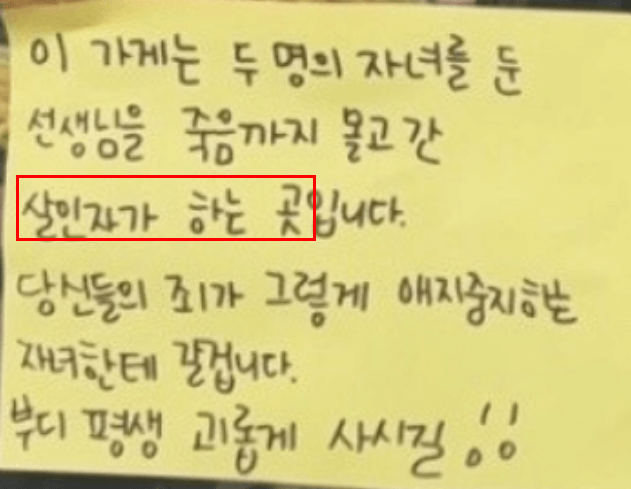 이 가게는 두 명의 자녀를 둔
선생님을 죽음까지 몰고 간
살인자가 하는 곳입니다.
당신들의 죄가 그렇게 애지중지하는
자녀한테 갈겁니다.
부디 평생 괴롭게 사시길!!